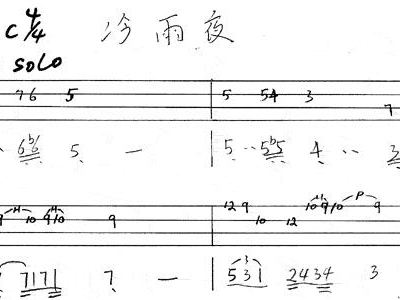 C 4/4 冷雨夜
SOLO
76 5 5 54 3 7
6♭6 5 — 5··5♭5 4 ·· 3
H H 12 9 H P
9 10 9 10 9 10 12 10 9 10 9
7171 7 — 3
531 2434 3